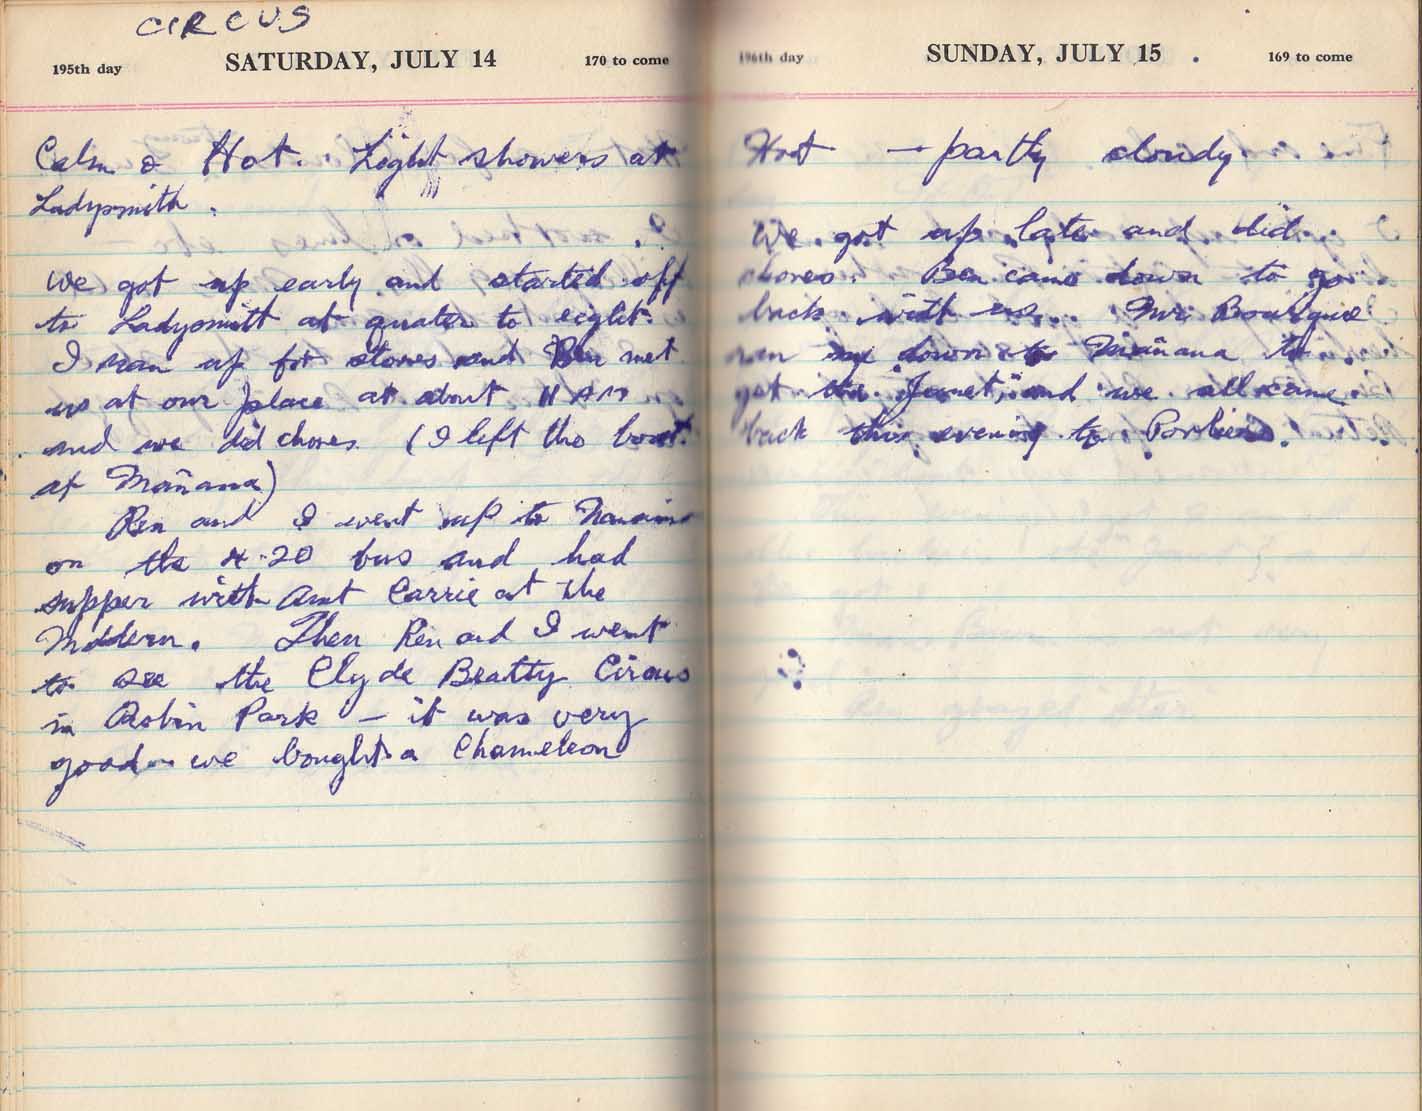 CIRCUS
195th day SATURDAY, JULY 14 170 to come
Calm & Hot. Light showers at
Ladysmith.
We got up early and started off
to Ladysmith at quater to eight.
I ran up for stores and Ben met
us at our place at about 11 AM
and we did chores (I left the boat
at Mañana)
Ren and I went up to Nanaimo
on the 4.20 bus and had
supper with Aunt Carrie at the
Modern. Then Ren and I went
to see the Clyde Beatty Circus
in Robin Park - it was very
good - we bought a Chameleon
196th day SUNDAY, JULY 15 169 to come
Hot - partly cloudy
We got up late and did
chores. Ben came down to go
back with us. Mr. Bourque
ran down to Mañana to
get the "Janet," and we all came
back this evening to Porlier.